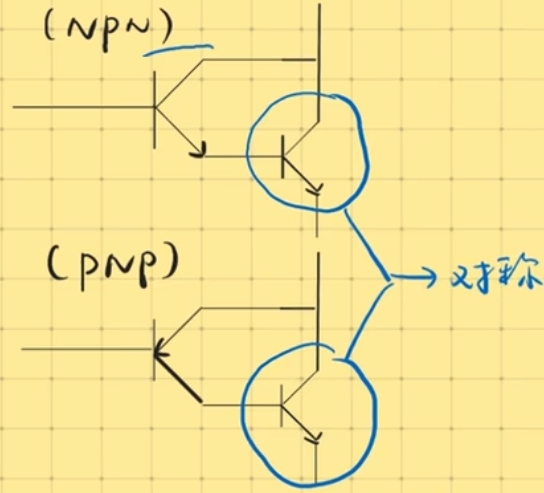 (NPN)
(PNP)
对称